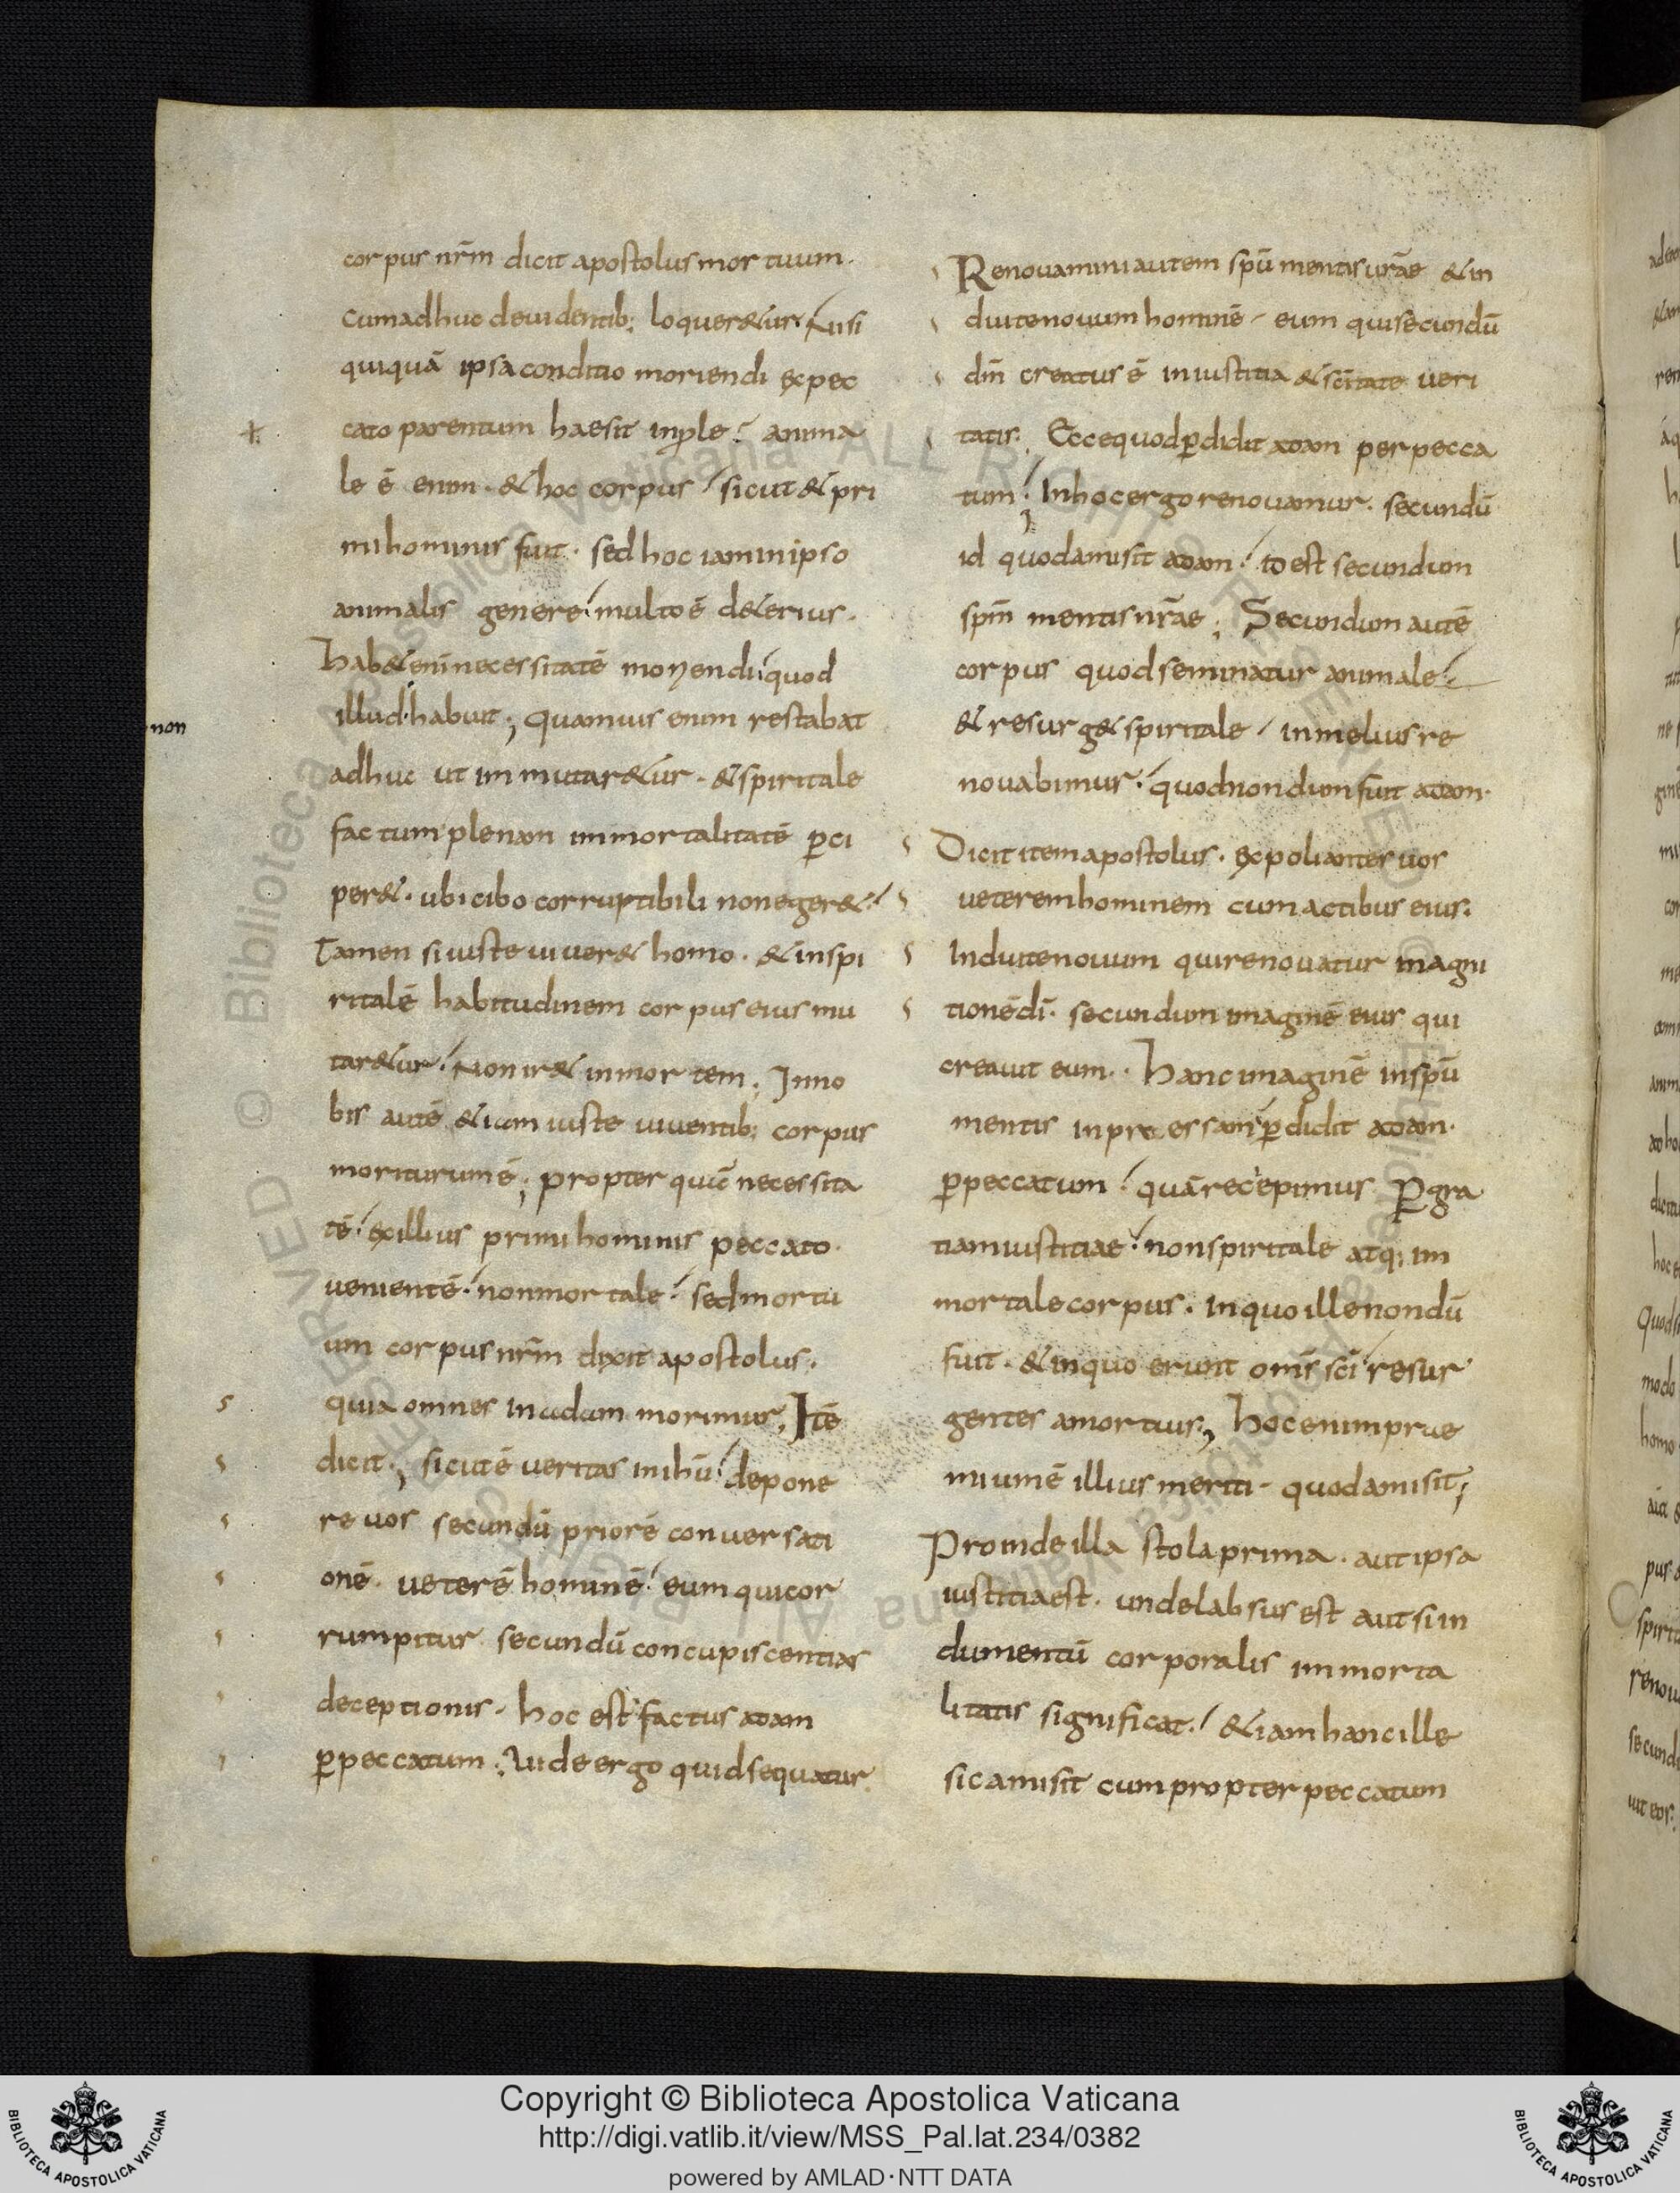 corpus nr̄m dicit apostolus mortuum.
cum adhuc de uidentib; loquer&ur. Nisi
quiquā ipsa conditio moriendi ex pec
cato parentum haesit inple? anima
le ē enim. & hoc corpus sicut & pri
mi hominis fuit. sed hoc iam in ipso
animalis genere multo ē d&erius.
Hab& enī necessitatē moriendi quod
non
illud habuit; quamuis enim restabat
adhuc ut immutar&ur. & spiritale
factum plenam immortalitatē ꝑci
per&. ubi cibo corruptibili non eger&.
Tamen si iuste uiuer& homo. & in spi
ritalē habitudinem corpus eius mu
tar&ur. Non ir& in mortem; In no
bis autē &iam iuste uiuentib; corpus
moriturum ē; propter quā necessita
tē ex illius primi hominis peccato
uenientē. non mortale sed mortu
um corpus nr̄m dixit apostolus.
quia omnes in adam morimur; Itē
dicit; sicut ē ueritas in ihū depone
re uos secundū priorē conuersati
onē. ueterē hominē eum qui cor
rumpitur secundū concupiscentias
deceptionis. hoc est factus adam
ꝑ peccatum; Uide ergo quid sequatur.
Renouamini autem spū mentis urāe & in
duite nouum hominē. eum qui secundū
dīn creatus ē in iustitia & scītate ueri
tatis. Ecce quod ꝑdidit adam per pecca
tum; In hoc ergo renouamur. secundū
id quod amisit adam id est secundum
spīn mentis nrāe; Secundum autē
corpus quod seminatur animale
& resurg& spiritale in melius re
nouabimur quod nondum fuit adam.
Dicit item apostolus. expoliantes uos
ueterem hominem cum actibus eius.
Induite nouum qui renouatur in agni
tionē dī. secundum imaginē eius qui
creauit eum. Hanc imaginē in spū
mentis inpressam ꝑdidit adam.
ꝑ peccatum quā recepimus ꝑ gra
tiam iustitiae non spiritale atq; im
mortale corpus. in quo ille nondū
fuit. & in quo erunt omīs scī resur
gentes a mortuis; Hoc enim prae
mium ē illius meriti. quod amisit;
Proinde illa stola prima. aut ipsa
iustitia est. unde labsus est aut si in
dumentū corporalis immorta
litatis significat. &iam hanc ille
sic amisit cum propter peccatum
Copyright © Biblioteca Apostolica Vaticana
http://digi.vatlib.it/view/MSS_Pal.lat.234/0382
powered by AMLAD·NTT DATA